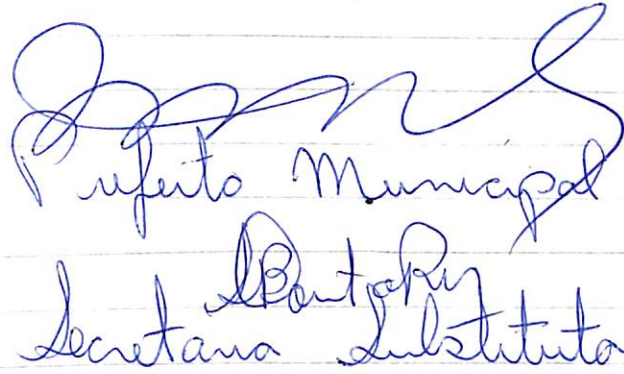 Prefeito Municipal
Secretaria Substituta